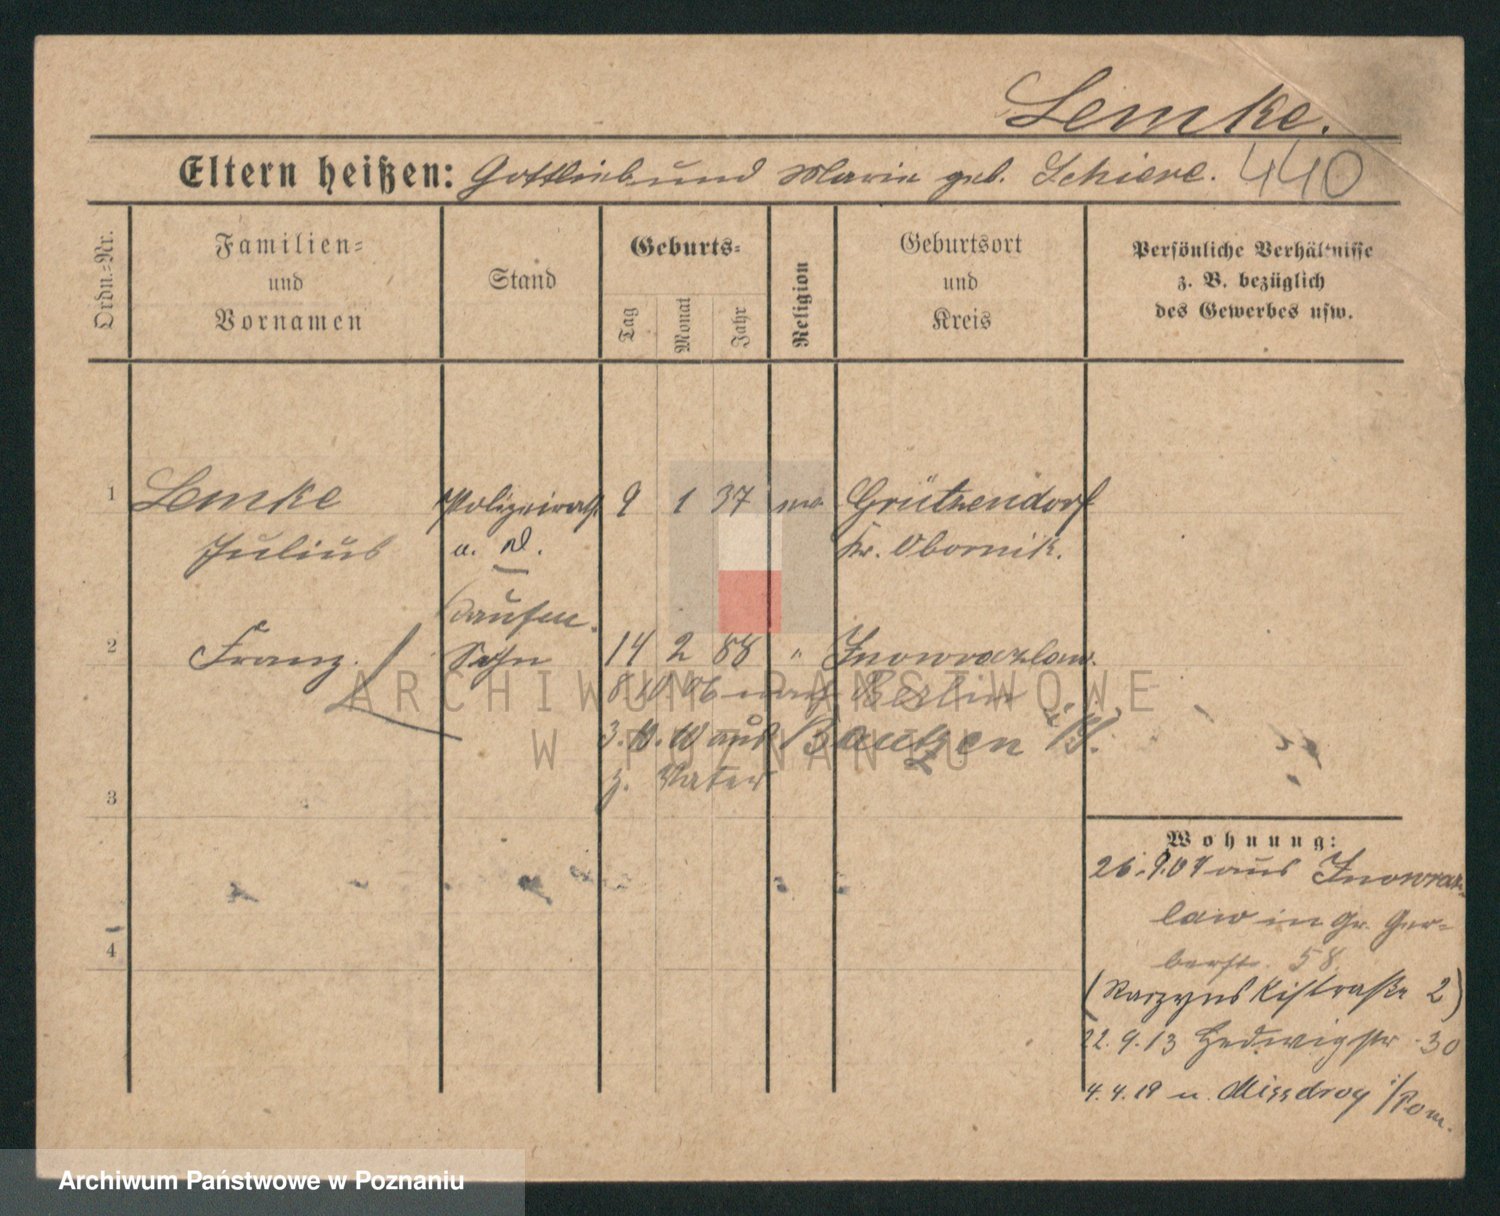 Lemke.
Eltern heißen: Gottlieb und Marie geb. Schiewe. 440
Ordn.=Nr.
Familien=
und
Vornamen
Stand
Geburts=
Tag
Monat
Jahr
Religion
Geburtsort
und
Kreis
Persönliche Verhältnisse
z. B. bezüglich
des Gewerbes usw.
1 Lemke Polizeirath 9 1 37 Grützendorf
Julius a. D. Kr. Obornik.
2 Franz. Sohn 14 2 88 " Inowrazlaw.
8 10 06 nach Berlin
3. 10. 10 aus Bautzen i/S.
z. Vater
3
4
Wohnung:
26. 9. 07 aus Inowraz-
law in Gr. Ger-
berstr. 58.
(Raczynskistraße 2)
22. 9. 13 Hedwigstr 30
4. 4. 19 n. Missdroy i/Pom.
ARCHIWUM PAŃSTWOWE
W POZNANIU
Archiwum Państwowe w Poznaniu